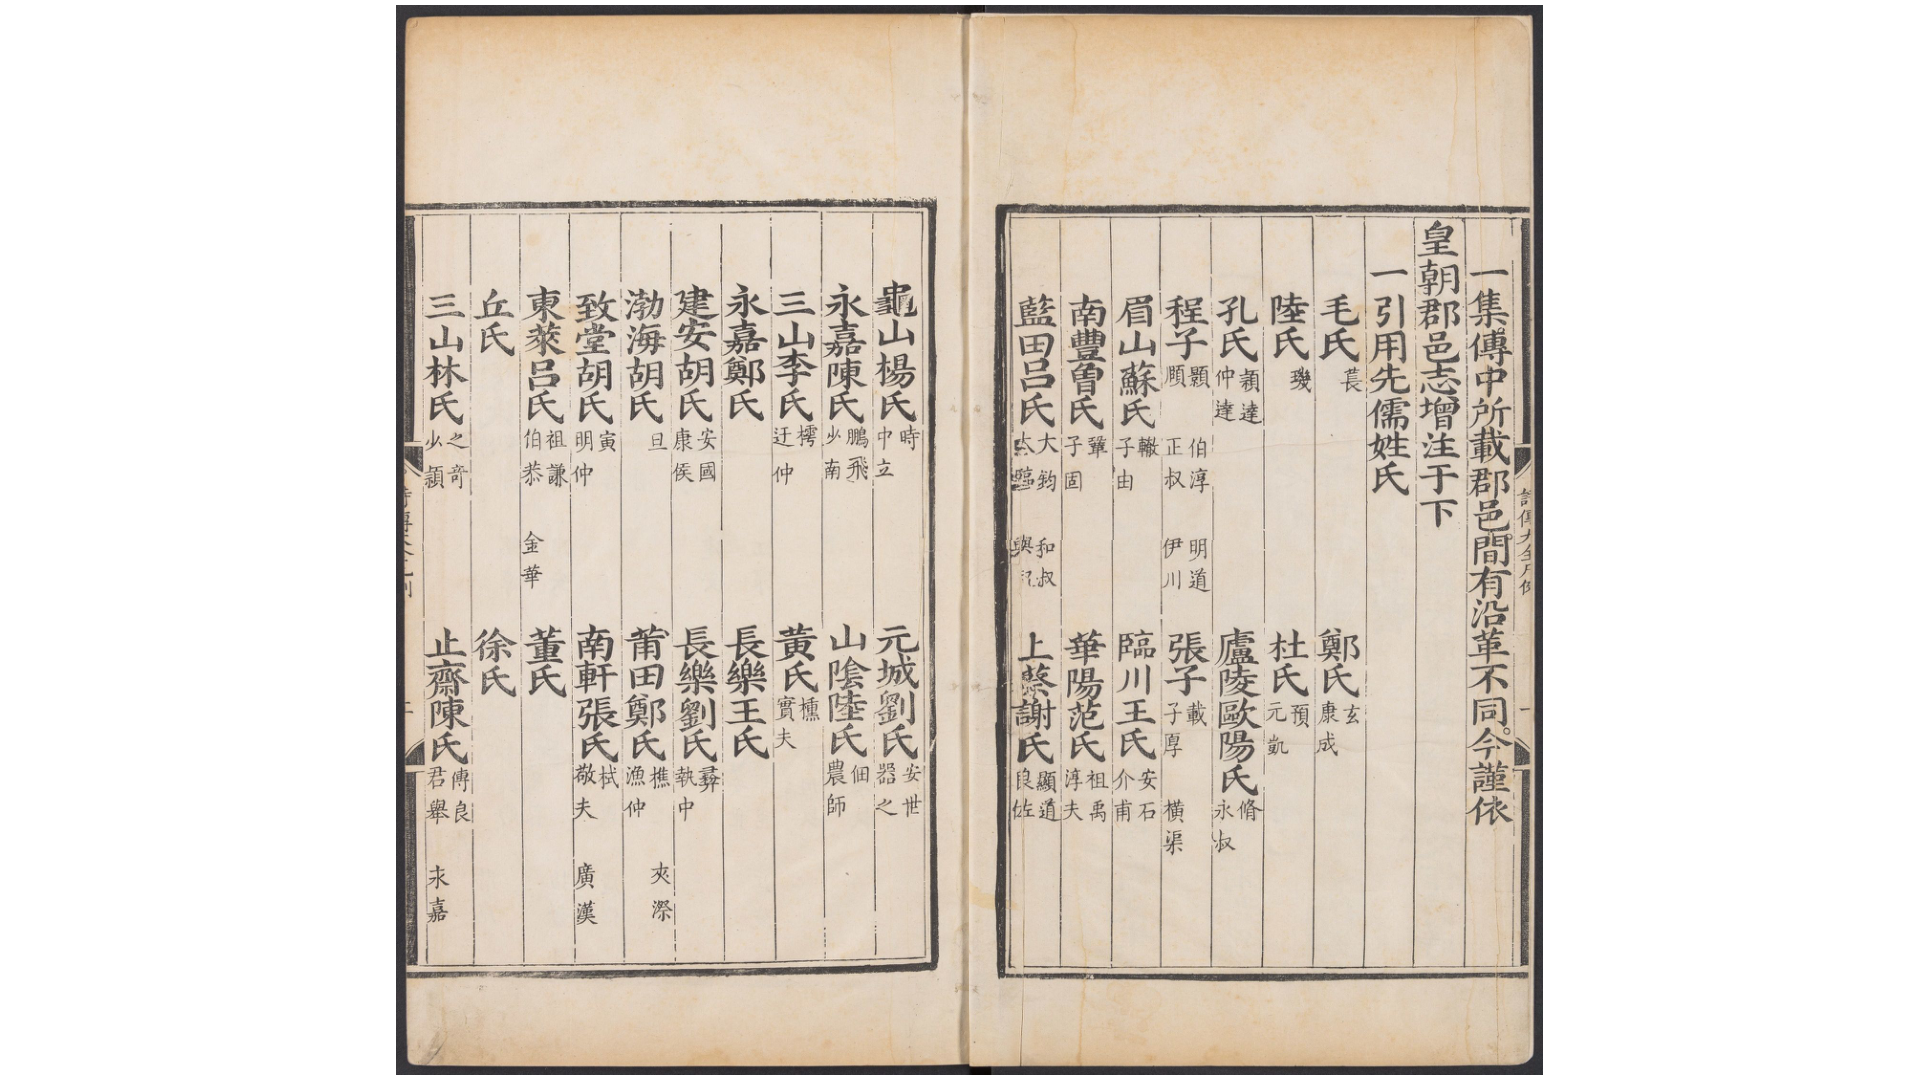 一集傳中所載郡邑間有沿革不同。今謹依
皇朝郡邑志增注于下
一引用先儒姓氏
毛氏 萇 鄭氏 玄 康成
陸氏 璣 杜氏 預 元凱
孔氏 穎達 仲達 廬陵歐陽氏 脩 永叔
程子 顥 伯淳 明道 頤 正叔 伊川 張子 載 子厚 橫渠
眉山蘇氏 轍 子由 臨川王氏 安石 介甫
南豐曾氏 鞏 子固 華陽范氏 祖禹 淳夫
藍田呂氏 大鈞 和叔 大臨 與 上蔡謝氏 顯道 良佐
龜山楊氏 時 中立 元城劉氏 安世 器之
永嘉陳氏 鵬飛 少南 山陰陸氏 佃 農師
三山李氏 樗 迂仲 黃氏 櫄 實夫
永嘉鄭氏 長樂王氏
建安胡氏 安國 康侯 長樂劉氏 彝 執中
渤海胡氏 旦 莆田鄭氏 樵 漁仲 夾漈
致堂胡氏 寅 明仲 南軒張氏 栻 敬夫 廣漢
東萊呂氏 祖謙 伯恭 金華 董氏
丘氏 徐氏
三山林氏 之奇 少穎 止齋陳氏 傅良 君舉 永嘉